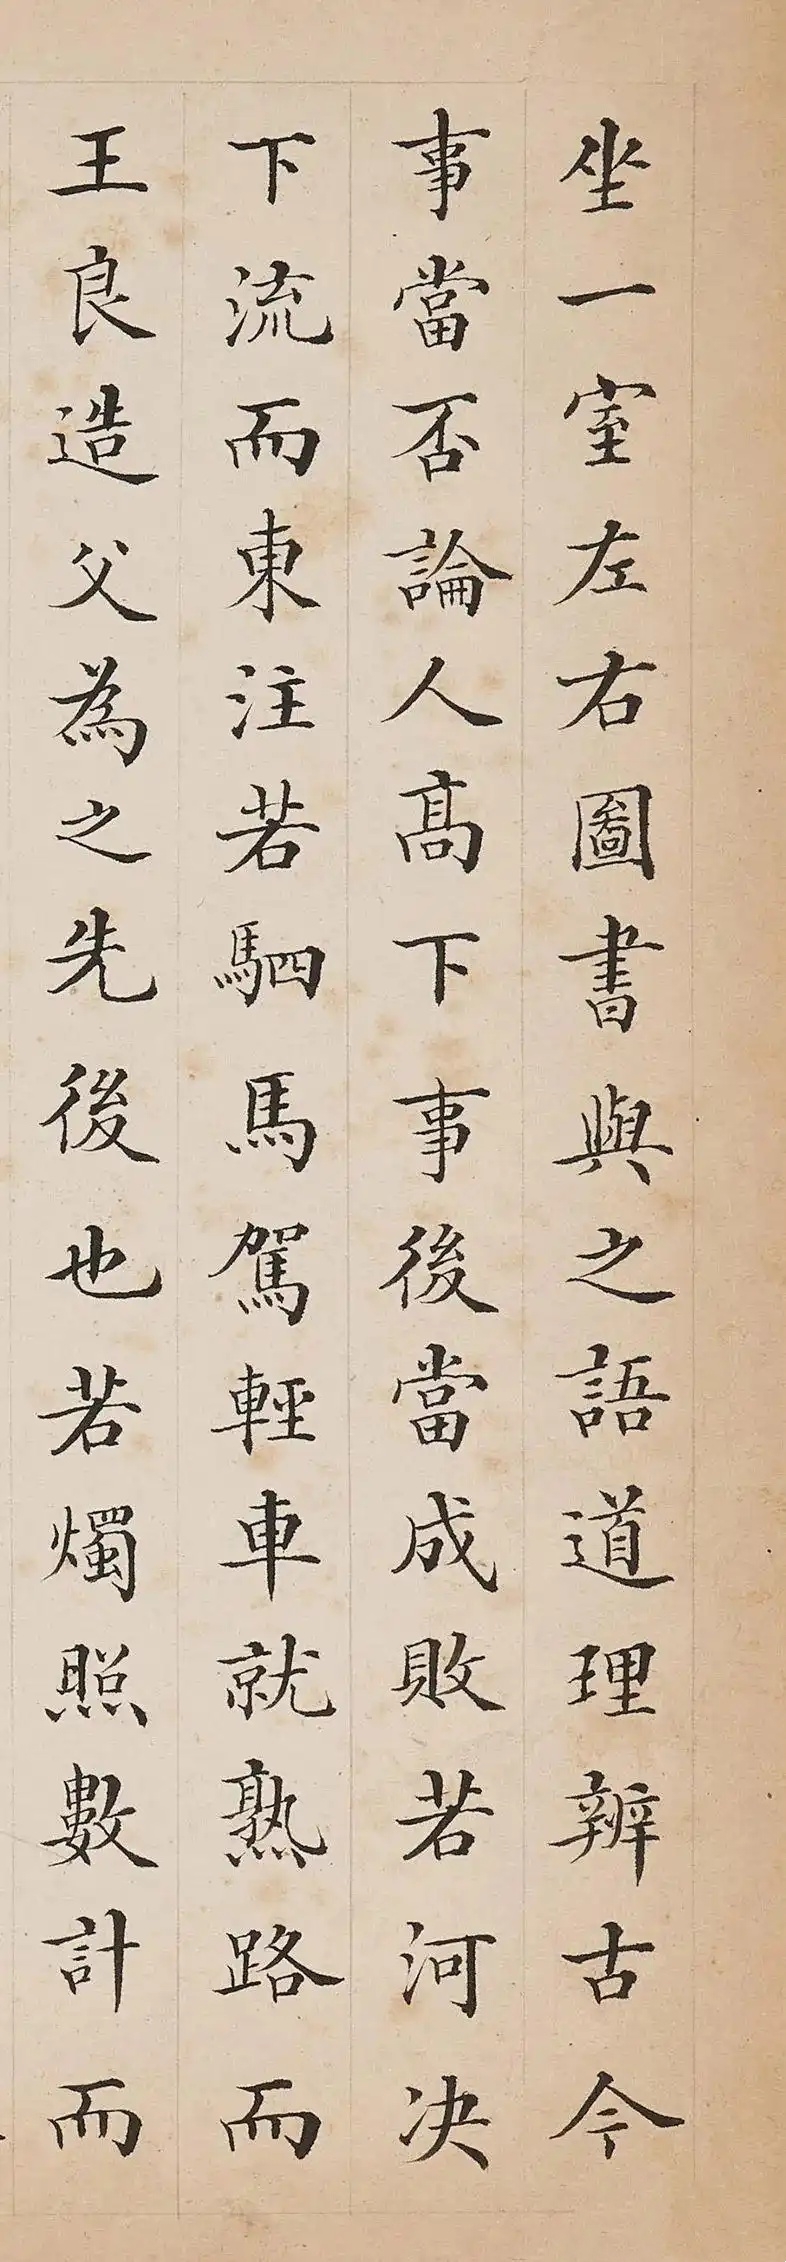 坐一室左右圖書與之語道理辨古今
事當否論人髙下事後當成敗若河决
下流而東注若駟馬駕輕車就熟路而
王良造父為之先後也若燭照數計而